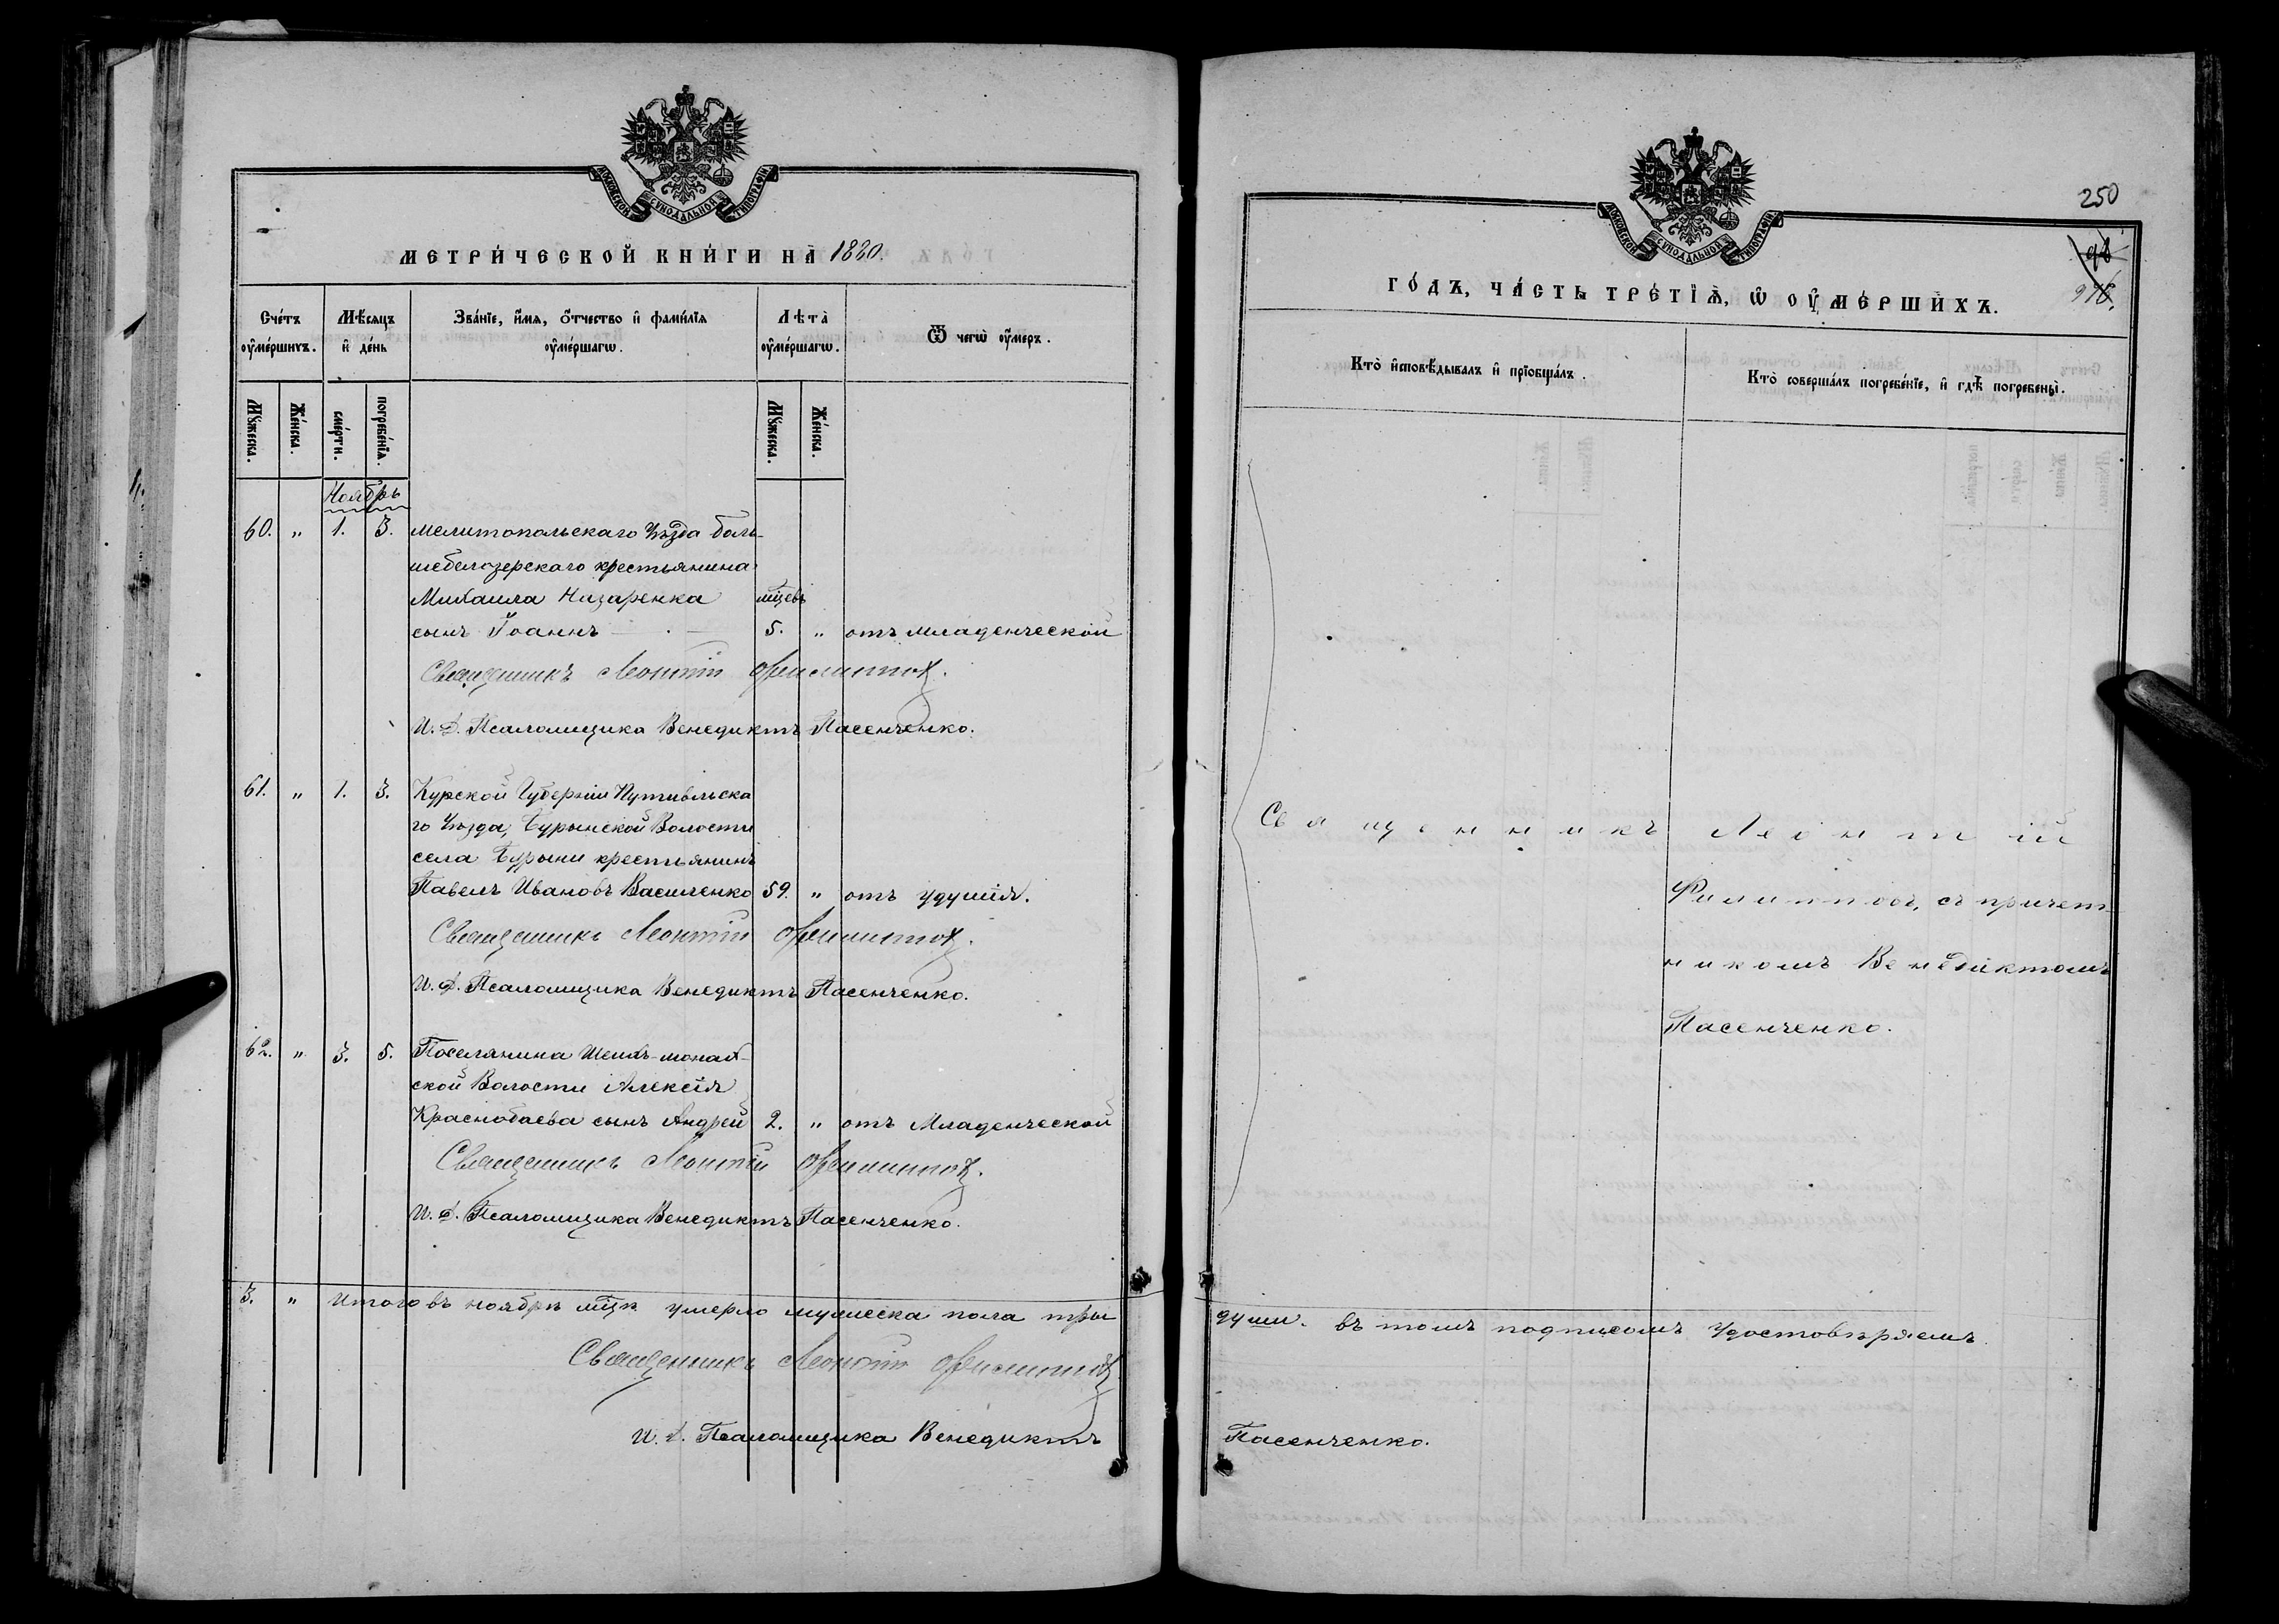 МОСКОВСКОЙ СѴНОДАЛЬНОЙ ТИПОГРАФІИ
МЕТРИ́ЧЕСКОЙ КНИ́ГИ НА̀ 1880.
Сче́тъ оу҆ме́ршихъ.
Мѣ́сяцъ и҆ де́нь
Зва́нїе, и҆́мѧ, о҆́тчество и҆ фами́лїѧ оу҆ме́ршагѡ.
Лѣ́та̀ оу҆ме́ршагѡ.
Ѿ чегѡ̀ оу҆́меръ.
Мꙋ́жеска.
Же́нска.
сме́рти.
погребе́нїѧ.
Мꙋ́жеска.
Же́нска.
Ноябрь
60. " 1. 3. Мелитопольскаго Уѣзда боль-
шебелозерскаго крестьянина
Михаила Назаренка мѣцевъ
сынъ Іоаннъ — 5. " отъ младенческой
Священникъ Леонтій Филиппов.
И. Д. Псаломщика Венедиктъ Пасенченко.
61. " 1. 3. Курской Губерніи Путивльска
го Уѣзда, Бурынской Волости
села Бурыни крестьянинъ
Павелъ Ивановъ Василенко 59. " отъ удушія.
Священникъ Леонтій Филиппов.
И. Д. Псаломщика Венедиктъ Пасенченко.
62. " 3. 5. Поселянина Шеихъ-монах-
ской Волости Алексія
Краснобаева сынъ Андрей 2. " отъ Младенческой
Священникъ Леонтій Филиппов.
И. Д. Псаломщика Венедиктъ Пасенченко.
3. " Итого въ ноябрѣ мѣцѣ умерло мужеска пола три
Священникъ Леонтій Филиппов
И. Д. Псаломщика Венедиктъ
МОСКОВСКОЙ СѴНОДАЛЬНОЙ ТИПОГРАФІИ
250
ГО́ДЪ, ЧА́СТЬ ТРЕ́ТЇѦ, Ѡ҆ ОУ҆МЕ́РШИХЪ.
Кто̀ и҆сповѣ́дывалъ и҆ прїобща́лъ.
Кто̀ соверша́лъ погребе́нїе, и҆ гдѣ̀ погребены̀.
Священникъ Леонтій
Филипповъ, съ причет-
никомъ Венедиктомъ
Пасенченко.
души. въ томъ подписомъ Удостовѣряемъ
Пасенченко.